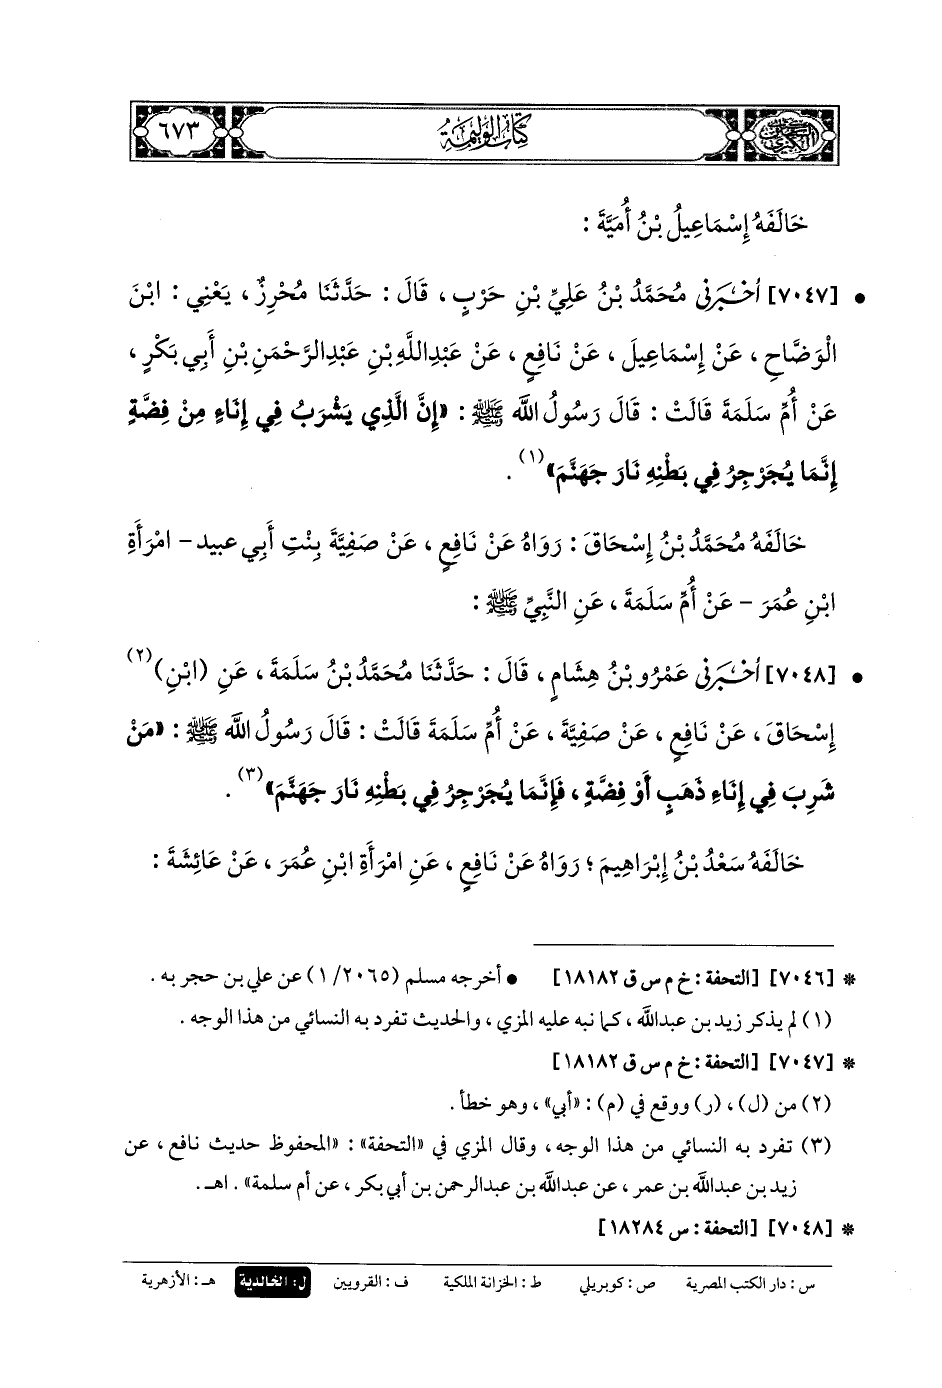 السنن الكبرى
كتاب الوليمة
٦٧٣
خَالَفَهُ إِسْمَاعِيلُ بْنُ أُمَيَّةَ :
• [٧٠٤٧] أَخْبَرَنِي مُحَمَّدُ بْنُ عَلِيِّ بْنِ حَرْبٍ ، قَالَ : حَدَّثَنَا مُحْرِزٌ ، يَعْنِي : ابْنَ
الْوَضَّاحِ ، عَنْ إِسْمَاعِيلَ ، عَنْ نَافِعٍ ، عَنْ عَبْدِاللَّهِ بْنِ عَبْدِالرَّحْمَنِ بْنِ أَبِي بَكْرٍ ،
عَنْ أُمِّ سَلَمَةَ قَالَتْ : قَالَ رَسُولُ اللَّه ﷺ : «إِنَّ الَّذِي يَشْرَبُ فِي إِنَاءٍ مِنْ فِضَّةٍ
إِنَّمَا يُجَرْجِرُ فِي بَطْنِهِ نَارَ جَهَنَّمَ»(١) .
خَالَفَهُ مُحَمَّدُ بْنُ إِسْحَاقَ : رَوَاهُ عَنْ نَافِعٍ ، عَنْ صَفِيَّةَ بِنْتِ أَبِي عبيد – امْرَأَةِ
ابْنِ عُمَرَ – عَنْ أُمِّ سَلَمَةَ ، عَنِ النَّبِيِّ ﷺ :
• [٧٠٤٨] أَخْبَرَنِي عَمْرُو بْنُ هِشَامٍ ، قَالَ : حَدَّثَنَا مُحَمَّدُ بْنُ سَلَمَةَ ، عَنِ (ابْنِ)(٢)
إِسْحَاقَ ، عَنْ نَافِعٍ ، عَنْ صَفِيَّةَ ، عَنْ أُمِّ سَلَمَةَ قَالَتْ : قَالَ رَسُولُ اللَّه ﷺ : «مَنْ
شَرِبَ فِي إِنَاءِ ذَهَبٍ أَوْ فِضَّةٍ ، فَإِنَّمَا يُجَرْجِرُ فِي بَطْنِهِ نَارَ جَهَنَّمَ»(٣) .
خَالَفَهُ سَعْدُ بْنُ إِبْرَاهِيمَ ؛ رَوَاهُ عَنْ نَافِعٍ ، عَنِ امْرَأَةِ ابْنِ عُمَرَ ، عَنْ عَائِشَةَ :
* [٧٠٤٦] [التحفة : خ م س ق ١٨١٨٢] • أخرجه مسلم (٢٠٦٥/ ١) عن علي بن حجر به .
(١) لم يذكر زيد بن عبداللَّه ، كما نبه عليه المزي ، والحديث تفرد به النسائي من هذا الوجه .
* [٧٠٤٧] [التحفة : خ م س ق ١٨١٨٢]
(٢) من (ل) ، (ر) ووقع في (م) : «أبي» ، وهو خطأ .
(٣) تفرد به النسائي من هذا الوجه ، وقال المزي في «التحفة» : «المحفوظ حديث نافع ، عن
زيد بن عبداللَّه بن عمر ، عن عبداللَّه بن عبدالرحمن بن أبي بكر ، عن أم سلمة» . اهـ .
* [٧٠٤٨] [التحفة : س ١٨٢٨٤]
س : دار الكتب المصرية ص : كوبريلي ط : الخزانة الملكية ف : القرويين ل : الخالدية هـ : الأزهرية